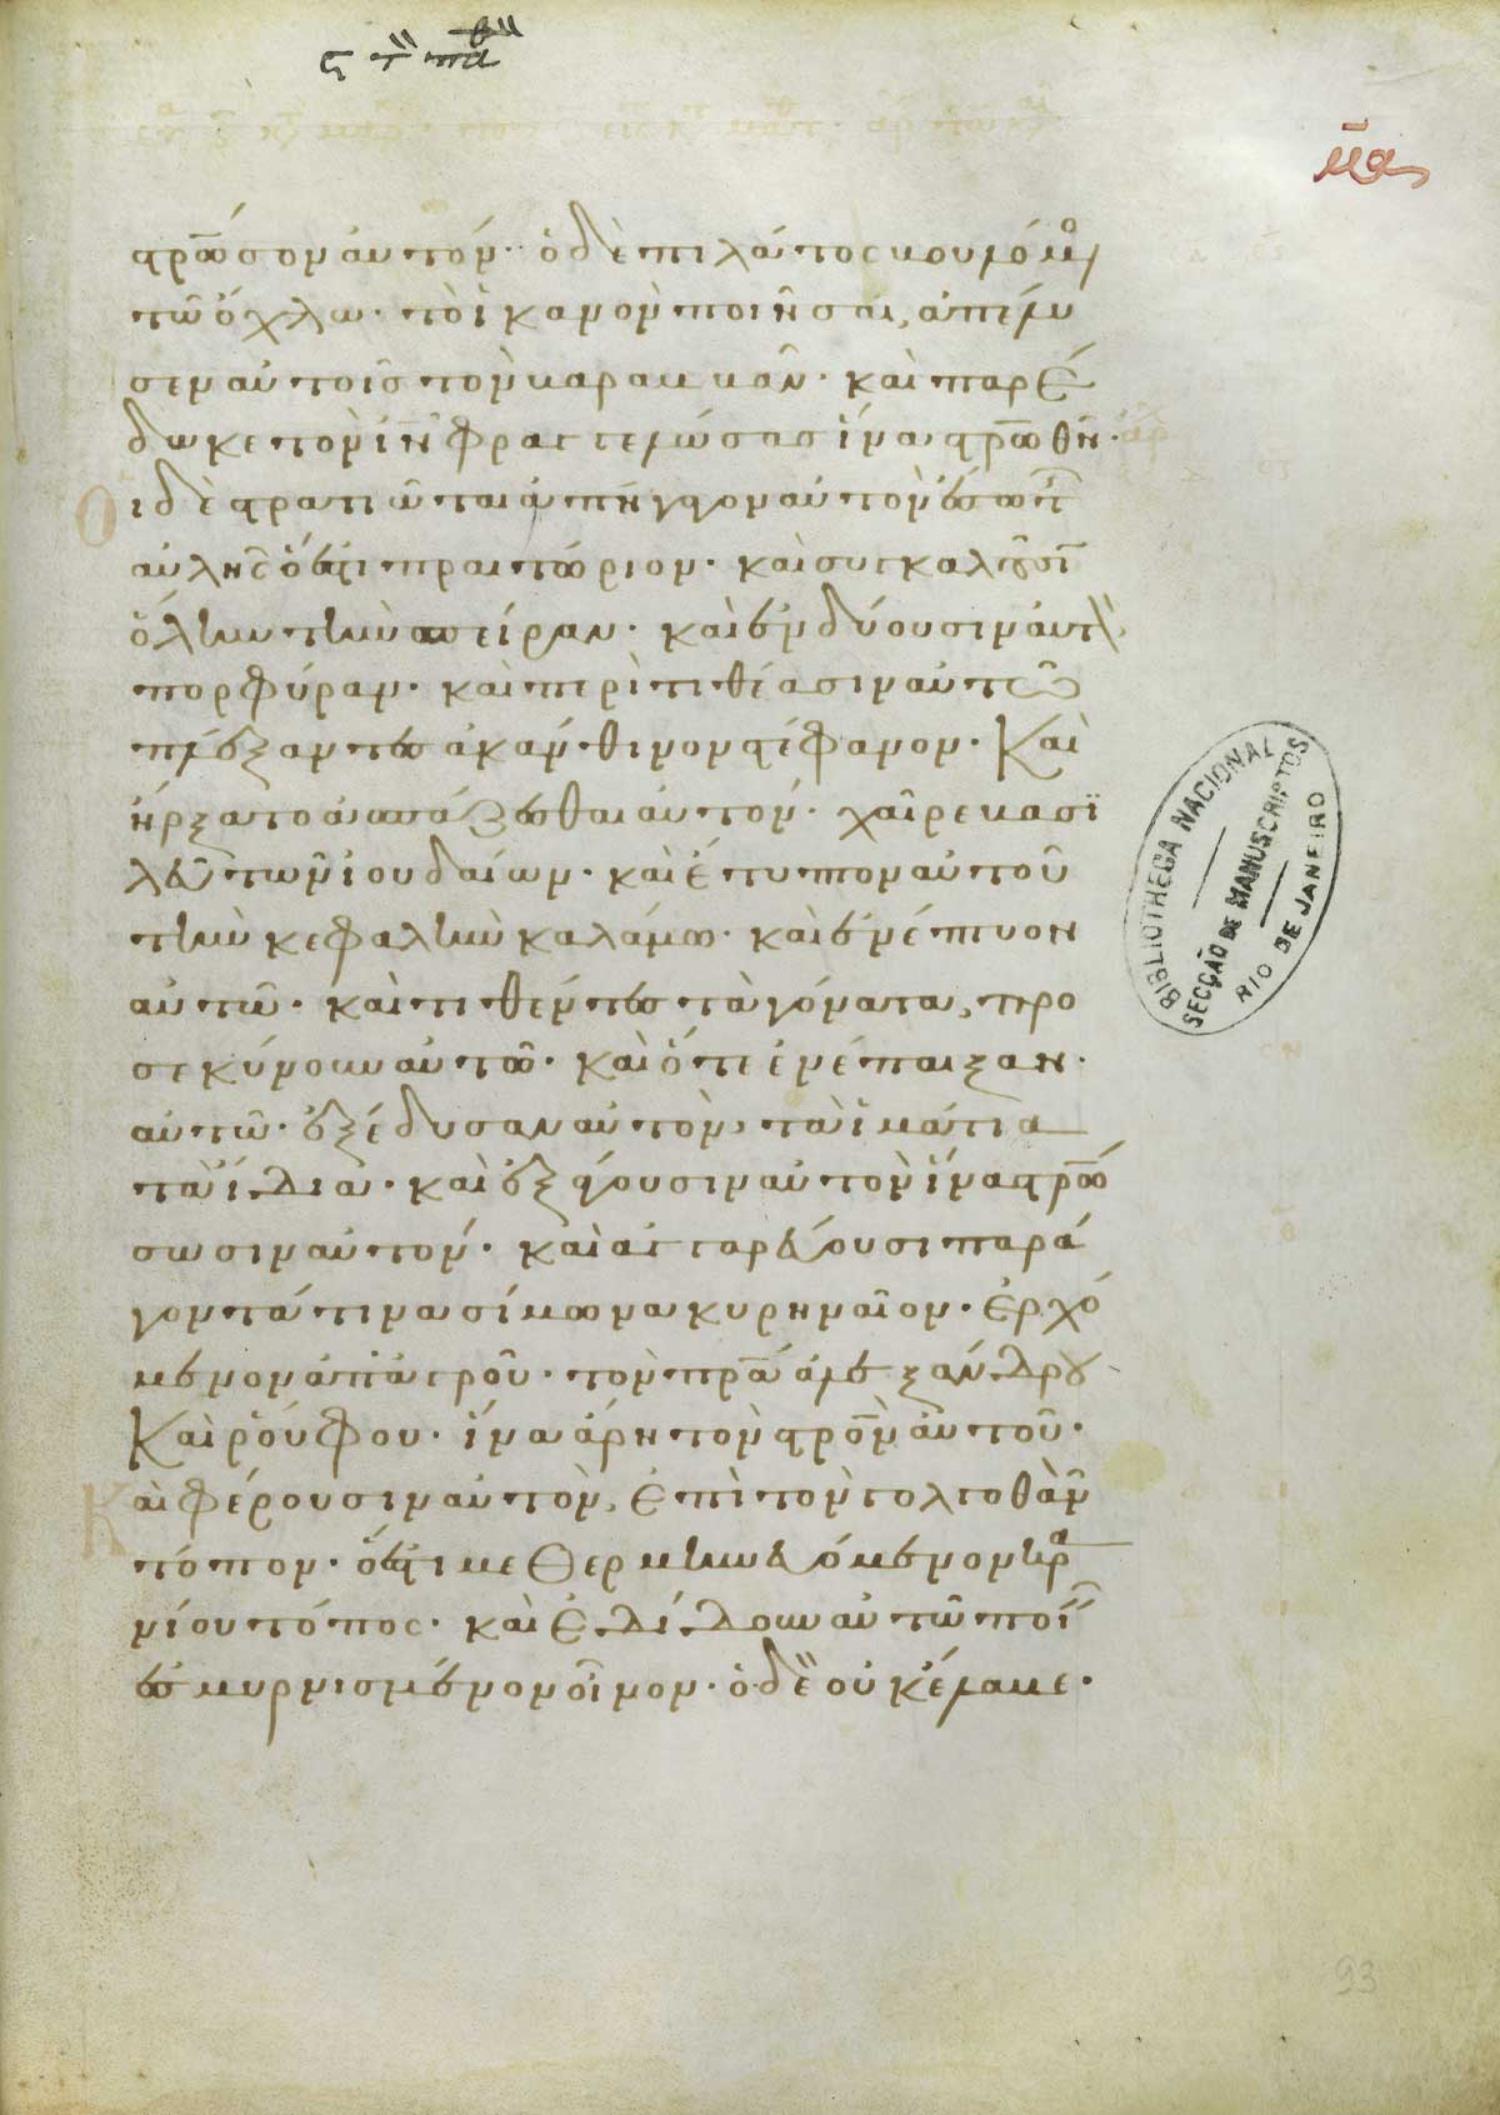 μα
στρωσον αυτόν· ὁ δὲ πιλάτος βουλόμ
τῶ ὄχλω· τὸ ἱκανὸν ποιῆσαι, ἀπέλυ
σεν αὐτοῖς τὸν βαραββᾶν· καὶ παρέ
δωκε τὸν ιν φραγγελώσας ἵνα στρωθῆ·
Οι δὲ στρατιῶται ἀπήγαγον αὐτὸν ἔσω τῆς
αὐλῆς ὅ ἐστι πραιτώριον· καὶ συγκαλοῦσι
ὅλην τὴν σπείραν· καὶ ἐνδύουσιν αὐτὸν
πορφύραν· καὶ περιτιθέασιν αὐτῶ
πλέξαντες ἀκάνθινον στέφανον· Καὶ
ἤρξατο ἀσπάζεσθαι αὐτόν· χαῖρε βασϊ
λεῦ τῶν ἰουδαίων· καὶ ἔτυπτον αὐτοῦ
τὴν κεφαλὴν καλάμω· καὶ ἐνέπτυον
αὐτῶ· καὶ τιθέντες τὰ γόνατα, προ
σεκύνουν αὐτῶ· καὶ ὅτε ἐνέπαιξαν·
αὐτῶ· ἐξέδυσαν αὐτὸν, τὰ ἱμάτια
τὰ ἴδια· καὶ ἐξάγουσιν αὐτὸν ἵνα στρώ
σωσιν αὐτόν· καὶ ἀγγαρεύουσι παρά
γοντά τινα σίμωνα κυρηναῖον· ἐρχό
μενον ἀπ' ἀγροῦ· τὸν πρα ἀλεξάνδρου
Καὶ ῥούφου· ἵνα ἄρη τὸν στρον αὐτοῦ·
Και φέρουσιν αὐτὸν, ἐπὶ τὸν γολγοθᾶν
τόπον· ὅ ἐστι μεθερμηνευόμενον κρα
νίου τόπος· καὶ ἐδίδουν αὐτῶ πιεῖν
ἐσμυρνισμένον οἶνον· ὁ δὲ οὐκ ἔλαβε·
BIBLIOTHECA NACIONAL
SECÇÃO DE MANUSCRIPTOS
RIO DE JANEIRO
93